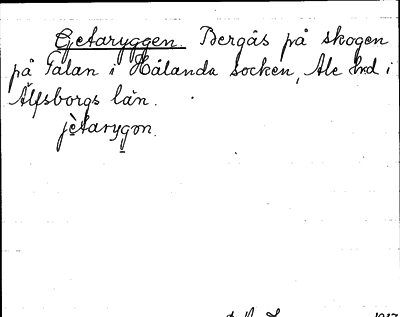 Getaryggen. Bergås på skogen
på Talan i Hålanda socken, Ale hd i
Älfsborgs län.
jètarygən.